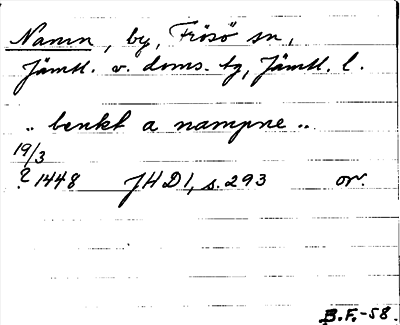 Namn, by, Frösö sn,
Jämtl. v. doms. tg, Jämtl. l.
.. benkt a nampne ..
19/3
? 1448 JHD1, s. 293 or.
B.F.-58.